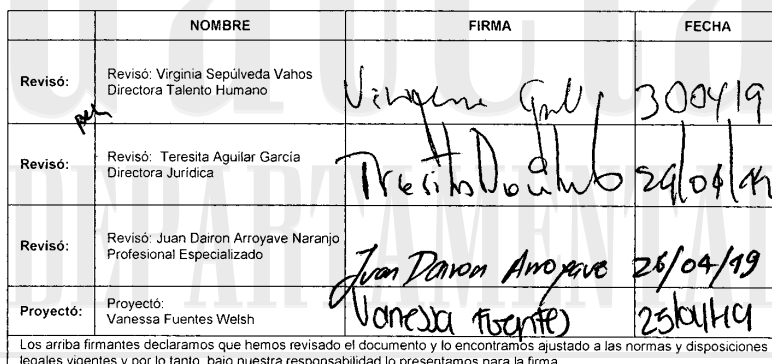 NOMBRE FIRMA FECHA
Revisó: Revisó: Virginia Sepúlveda Vahos
Directora Talento Humano
300419
Revisó: Revisó: Teresita Aguilar García
Directora Jurídica
29/04/19
Revisó: Revisó: Juan Dairon Arroyave Naranjo
Profesional Especializado
Juan Dairon Arroyave 26/04/19
Proyectó: Proyectó:
Vanessa Fuentes Welsh
Vanessa Fuentes 25/04/19
Los arriba firmantes declaramos que hemos revisado el documento y lo encontramos ajustado a las normas y disposiciones
legales vigentes y por lo tanto, bajo nuestra responsabilidad lo presentamos para la firma.
DEPARTAMENTAL